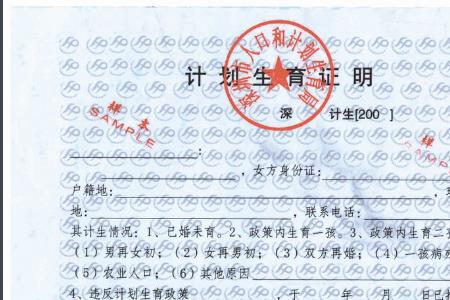 深圳市人口和计划生育局
计划生育证明
深 计生[200 ]
样本
SAMPLE
样
SAMP
:
,女方身份证:
户籍地:
地: ,联系电话:
其计生情况: 1、已婚未育。2、政策内生育一孩。3、政策内生育二孩
(1)男再女初; (2)女再男初; (3)双方再婚; (4)一孩病残
(5)农业人口; (6)其他原因
4、违反计划生育政策 ,于 年 月 日已